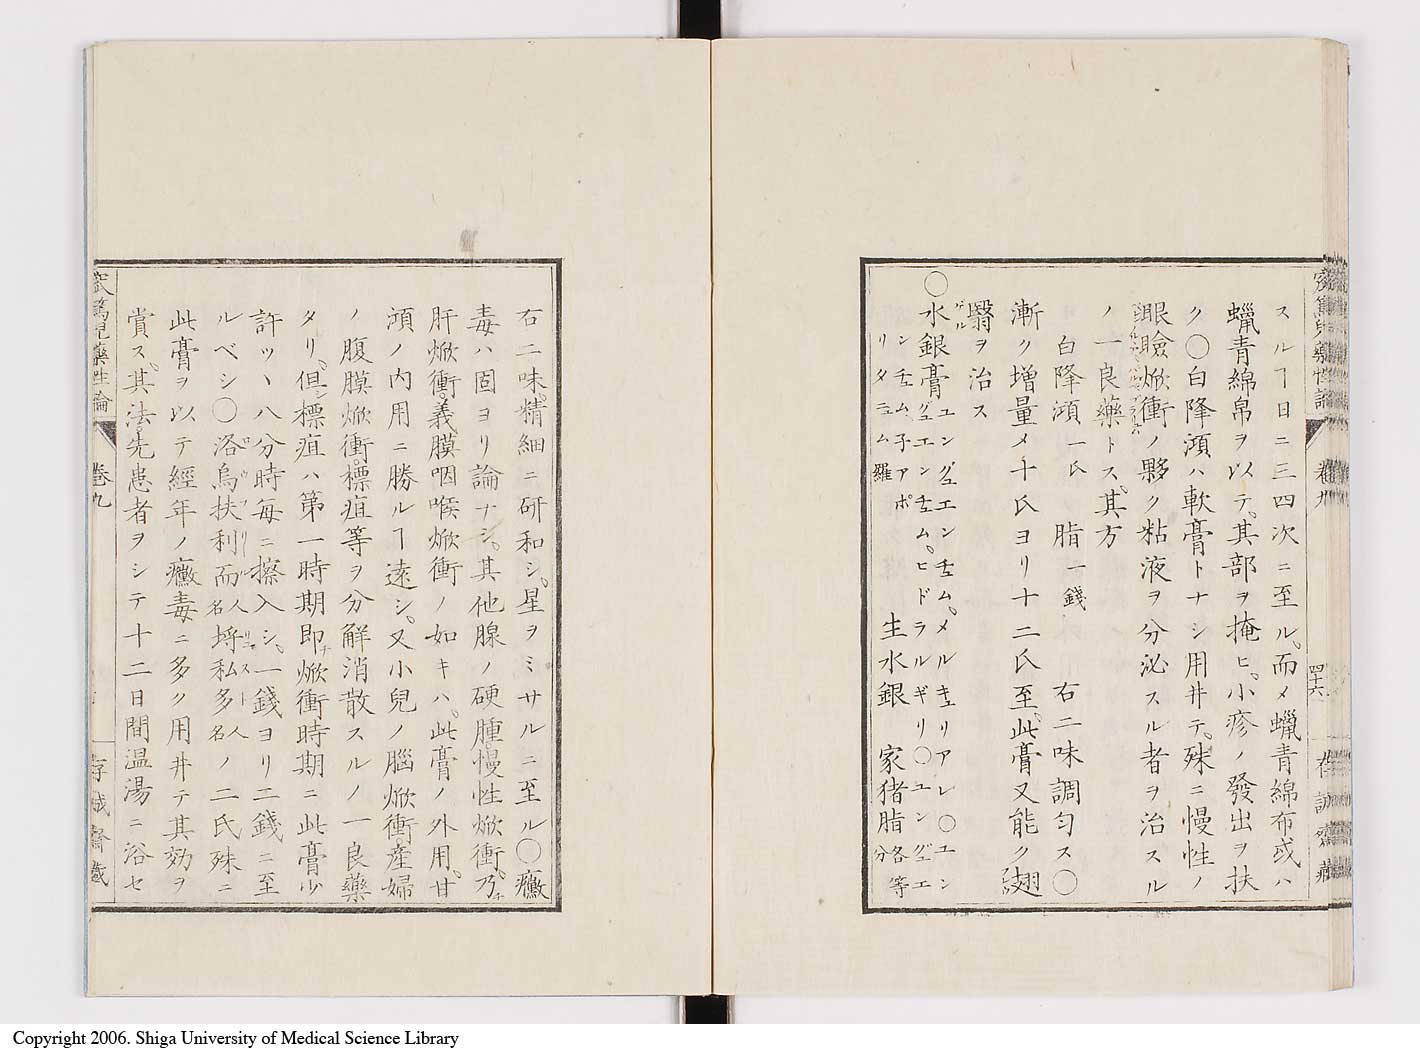 スルヿ日ニ三四次ニ至ル。而メ蠟青綿布或ハ
蠟青綿帛ヲ以テ。其部ヲ掩ヒ。小疹ノ發出ヲ扶
ク〇白降澒ハ軟膏トナシ用井テ。殊ニ慢性ノ
眼瞼焮衝ノ夥ク粘液ヲ分泌スル者ヲ治スル
ノ一良藥トス。其方
白降澒一氏 脂一錢 右二味調匀ス〇
漸ク増量メ十氏ヨリ十二氏至。此膏又能ク翅
翳ヲ治ス
〇水銀膏 ユングエンチュム。メルキュリアレ〇ユン
グエンチュム。ヒドラルギリ〇ユングエ
ンチュム子アポ
リタニュム 羅
生水銀 家猪脂 各等分
卷九
四十六
右二味。精細ニ研和シ。星ヲミサルニ至ル〇黴
毒ハ固ヨリ論ナシ。其他腺ノ硬腫。慢性焮衝。乃チ
肝焮衝。義膜咽喉焮衝ノ如キハ。此膏ノ外用。甘
澒ノ内用ニ勝ルヿ遠シ。又小兒ノ腦焮衝。産婦
ノ腹膜焮衝。標疽等ヲ分解消散スルノ一良藥
タリ。但シ標疽ハ第一時期即チ焮衝時期ニ此膏少
許ツヽ八分時毎ニ擦入シ。一錢ヨリ二錢ニ至
ルベシ〇洛烏扶利而人名埓私多人名ノ二氏殊ニ
此膏ヲ以テ經年ノ黴毒ニ多ク用井テ其効ヲ
賞ス。其法先患者ヲシテ十二日間温湯ニ浴セ
藥性論
卷九
存誠齋藏
Copyright 2006. Shiga University of Medical Science Library